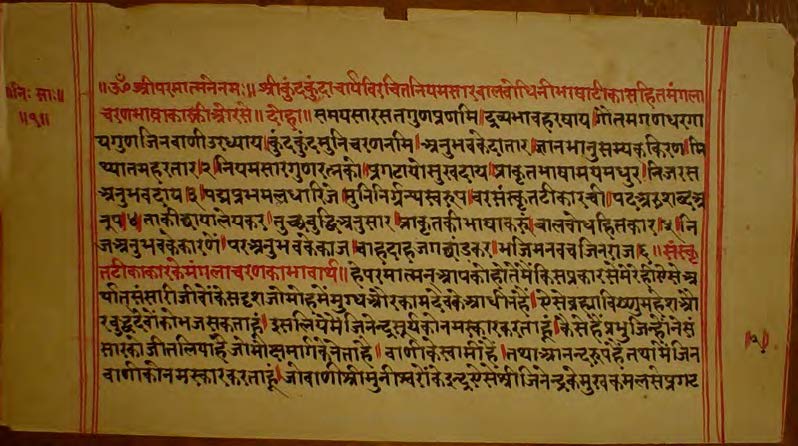 ॥निः साः॥
॥१॥
॥ॐ श्रीपरमात्मनेनमः॥ श्रीकुंदकुंदाचार्यविरचितनियमसारबालबोधिनीभाषाटीकासहितमंगला
चरणभाषाकारकीओरसे॥ दोहा॥ समयसारसतगुणप्रणमि। द्रव्यभावहरषाय। गोतमगणधरगा
यगुणजिनवाणीउरध्याय। कुंदकुंदमुनिचरणनमि। अनुभवकेदातार। ज्ञानभानुसम्यककिरण। मि
थ्यातमहरतार।२। नियमसारगुणरत्नको। प्रगटायोसुखदाय। प्राकृतभाषामयमधुर। निजरस
अनुभवदाय।३। पद्मप्रभमलधारिजे। मुनिनिर्ग्रन्थस्वरूप। वरसंस्कृतटीकारची। पदअरुशब्दअ
नूप।४। ताकीछायालेयकर। तुच्छबुद्धिअनुसार। प्राकृतकीभाषाकरूं। बालबोधहितकार।५। नि
जअनुभवकेकारणें। परअनुभवकेकाज। भजिमनवचजिनराज।६। संस्कृ
तटीकाकारकेमंगलाचरणकाभावार्थ॥ हेपरमात्मनआपकोहोतेंमेंकिसप्रकारसेमेरेहीऐसेअ
र्थातसंसारीजीवोंकेसदृशजोमोहमेंमुग्धऔरकामदेवकेआधीनहें। ऐसेब्रह्माविष्णुमहेशऔ
रबुद्धदेवोंकोभजसकताहूं। इसलियेमेंजिनेन्द्रसूर्यकोनमस्कारकरताहूं। कैसेहेंप्रभुजिन्होंनेसं
सारकोजीतलियाहेजोमोक्षमार्गकेनेताहे। वाणीकेस्वामीहें। तथाआनन्दरूपहेंतथामेंजिन
वाणीकोनमस्कारकरताहूं। जोवाणीश्रीमुनीश्वरोंकेइन्द्रऐसेंश्रीजिनेन्द्रकेमुखकमलसेप्रगट